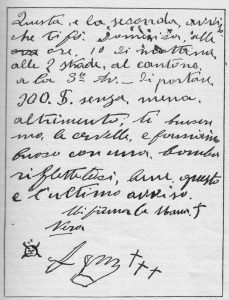 Questa, e la seconda, avviso
che ti fo. Dominica, alle
ore, 10 di mattina
alle 3 strade, al cantone,
a la 3ª Av. — di portare
300. $. senza, mena.
altrimento, ti bucia
mo, la cervella, e facciam
buoso con una, bomba
riflettetici, bene, questo
e l'ultimo avviso.
Mi firmo la Mano, †
Nera